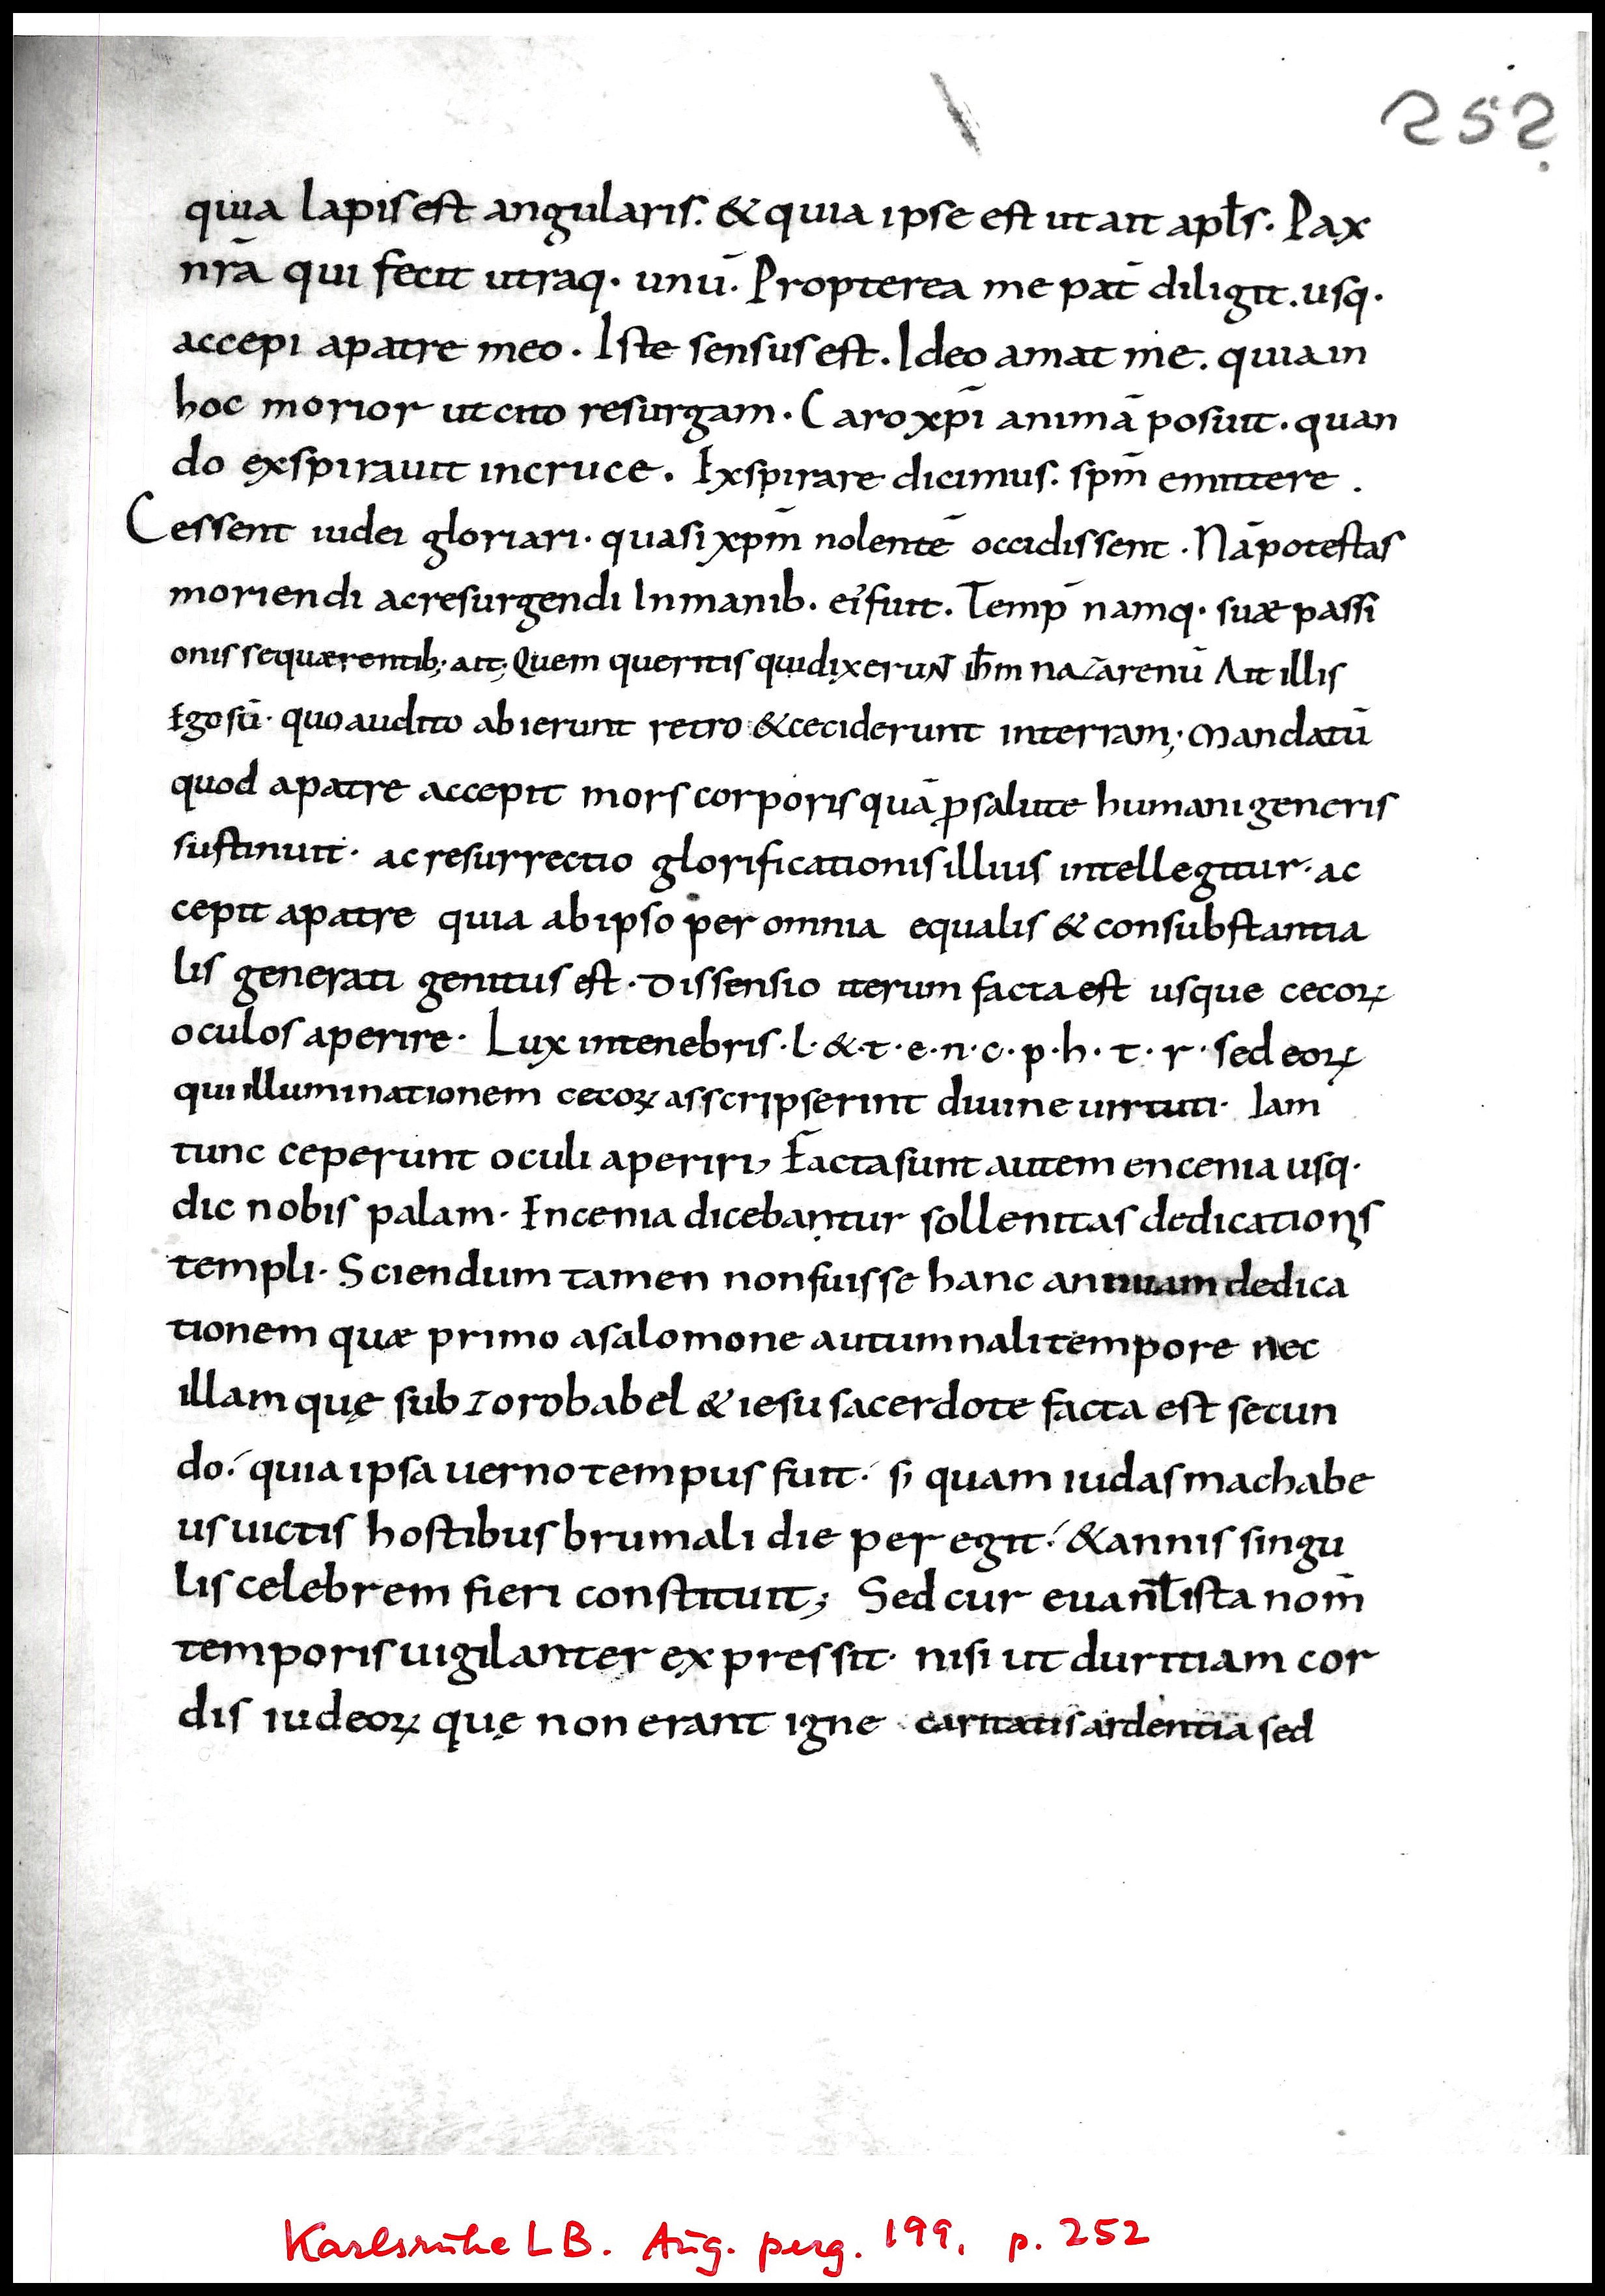 252
quia lapis est angularis. & quia ipse est ut ait apl̅s. Pax
nr̅a qui fecit utraq. unu̅. Propterea me pat̅ diligit. usq.
accepi a patre meo. Iste sensus est. Ideo amat me. quia in
hoc morior ut cito resurgam. Caro xpi̅ anima̅ posuit. quan
do exspirauit in cruce. Exspirare dicimus. spm̅ emittere.
Cessent iudei gloriari. quasi xpm̅ nolente̅ occidissent. Na̅ potestas
moriendi ac resurgendi In manib. ei' fuit. Temp̅ namq. suæ passi
onis se quærentib; ait; Quem queritis qui dixeruN ih̅m nazarenu̅ Ait illis
Ego su̅. quo audito abierunt retro & ceciderunt in terram; Mandatu̅
quod a patre accepit mors corporis qua̅ ꝓ salute humani generis
sustinuit. ac resurrectio glorificationis illius intellegitur. ac
cepit a patre quia ab ipso per omnia equalis & consubstantia
lis generati genitus est. Dissensio iterum facta est usque cecoꝝ
oculos aperire. Lux in tenebris. l. &. t. e. n. c. p. h. t. r. sed eoꝝ
qui illuminationem cecoꝝ asscripserint diuine uirtuti. Iam
tunc ceperunt oculi aperiri, Facta sunt autem encenia usq.
dic nobis palam. Encenia dicebantur sollenitas dedications
templi. Sciendum tamen non fuisse hanc annuam dedica
tionem quæ primo a salomone autumnali tempore nec
illam quę sub zorobabel & iesu sacerdote facta est secun
do. quia ipsa uerno tempus fuit. s; quam iudas machabe
us uictis hostibus brumali die peregit. & annis singu
lis celebrem fieri constituit; Sed cur euanl̅ista nom̅
temporis uigilanter expressit. nisi ut duritiam cor
dis iudeoꝝ quę non erant igne caritatis ardentia sed
Karlsruhe LB. Aug. perg. 199, p. 252